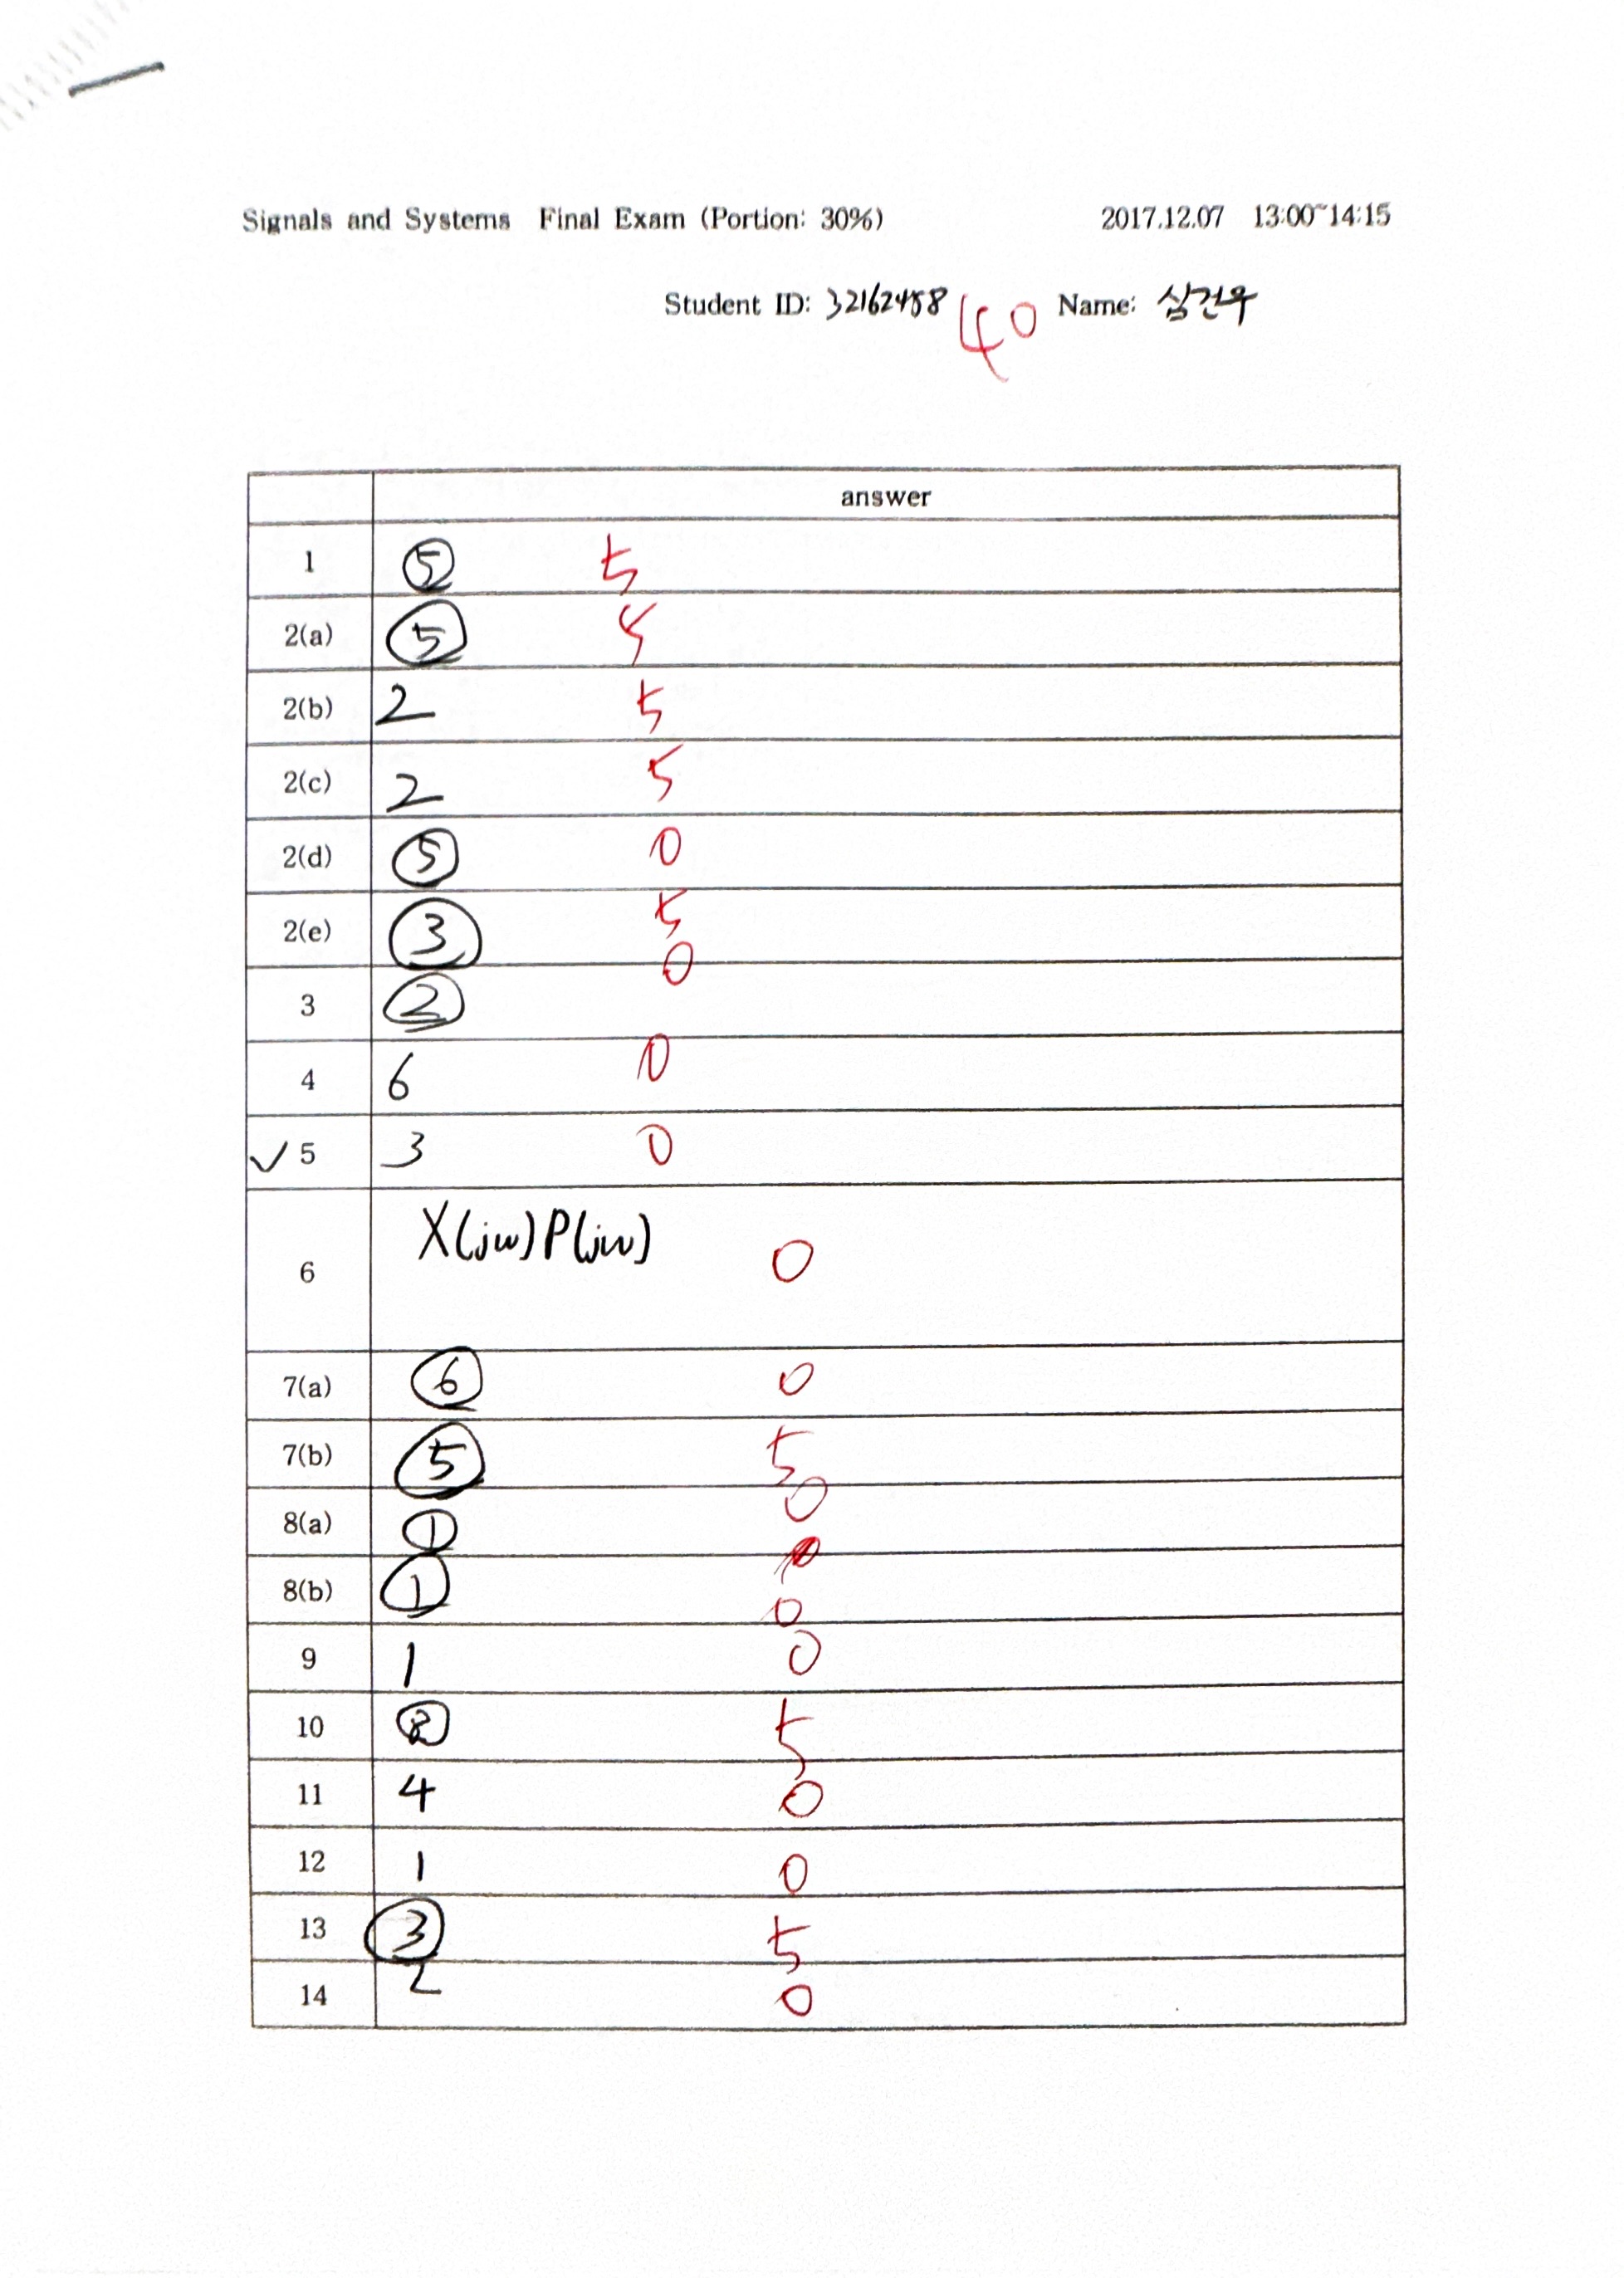 Signals and Systems Final Exam (Portion: 30%) 2017.12.07 13:00~14:15
Student ID: 32162488 40 Name: 심건우
answer
1 ⑤ 5
2(a) ⑤ 5
2(b) 2 5
2(c) 2 5
2(d) ⑤ 0
2(e) ③ 5
3 ② 0
4 6 0
✓ 5 3 0
6 X(jw)P(jw) 0
7(a) ⑥ 0
7(b) ⑤ 5
8(a) ① 0
8(b) ① 0
9 1 0
10 ② 5
11 4 0
12 1 0
13 ③ 5
14 2 0